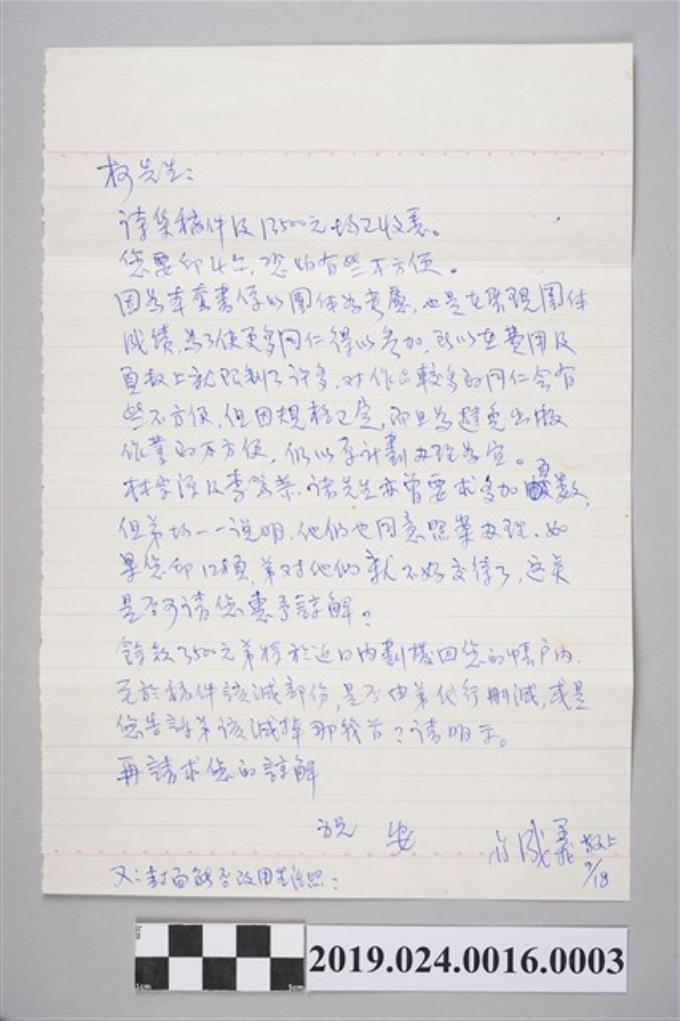 柯先生:
詩集稿件及13500元均已收悉。
您要印4台,恐怕有些不方便。
因為本套書係以團体為考慮,也是在展現團体
成績,為了使更多同仁得以參加,所以在費用及
頁數上就限制了許多,對作品較多的同仁会有
些不方便,但因規格已定,而且為避免出版
作業的不方便,仍以原計劃办理為宜。
林宗源及李魁賢諸先生亦曾要求多加頁數,
但弟均一一说明,他們也同意照案办理。如
果您印128頁,弟对他們就不好交待了,這点
是否可请您惠予諒解?
餘款3500元弟將於近日內劃撥回您的帳戶內.
至於稿件該減部份,是否由弟代行刪減,或是
您告訴弟該減掉那幾首?请明示。
再請求您的諒解
祝 安
成義 敬上
9/18
又:封面能否改用生活照?
2019.024.0016.0003